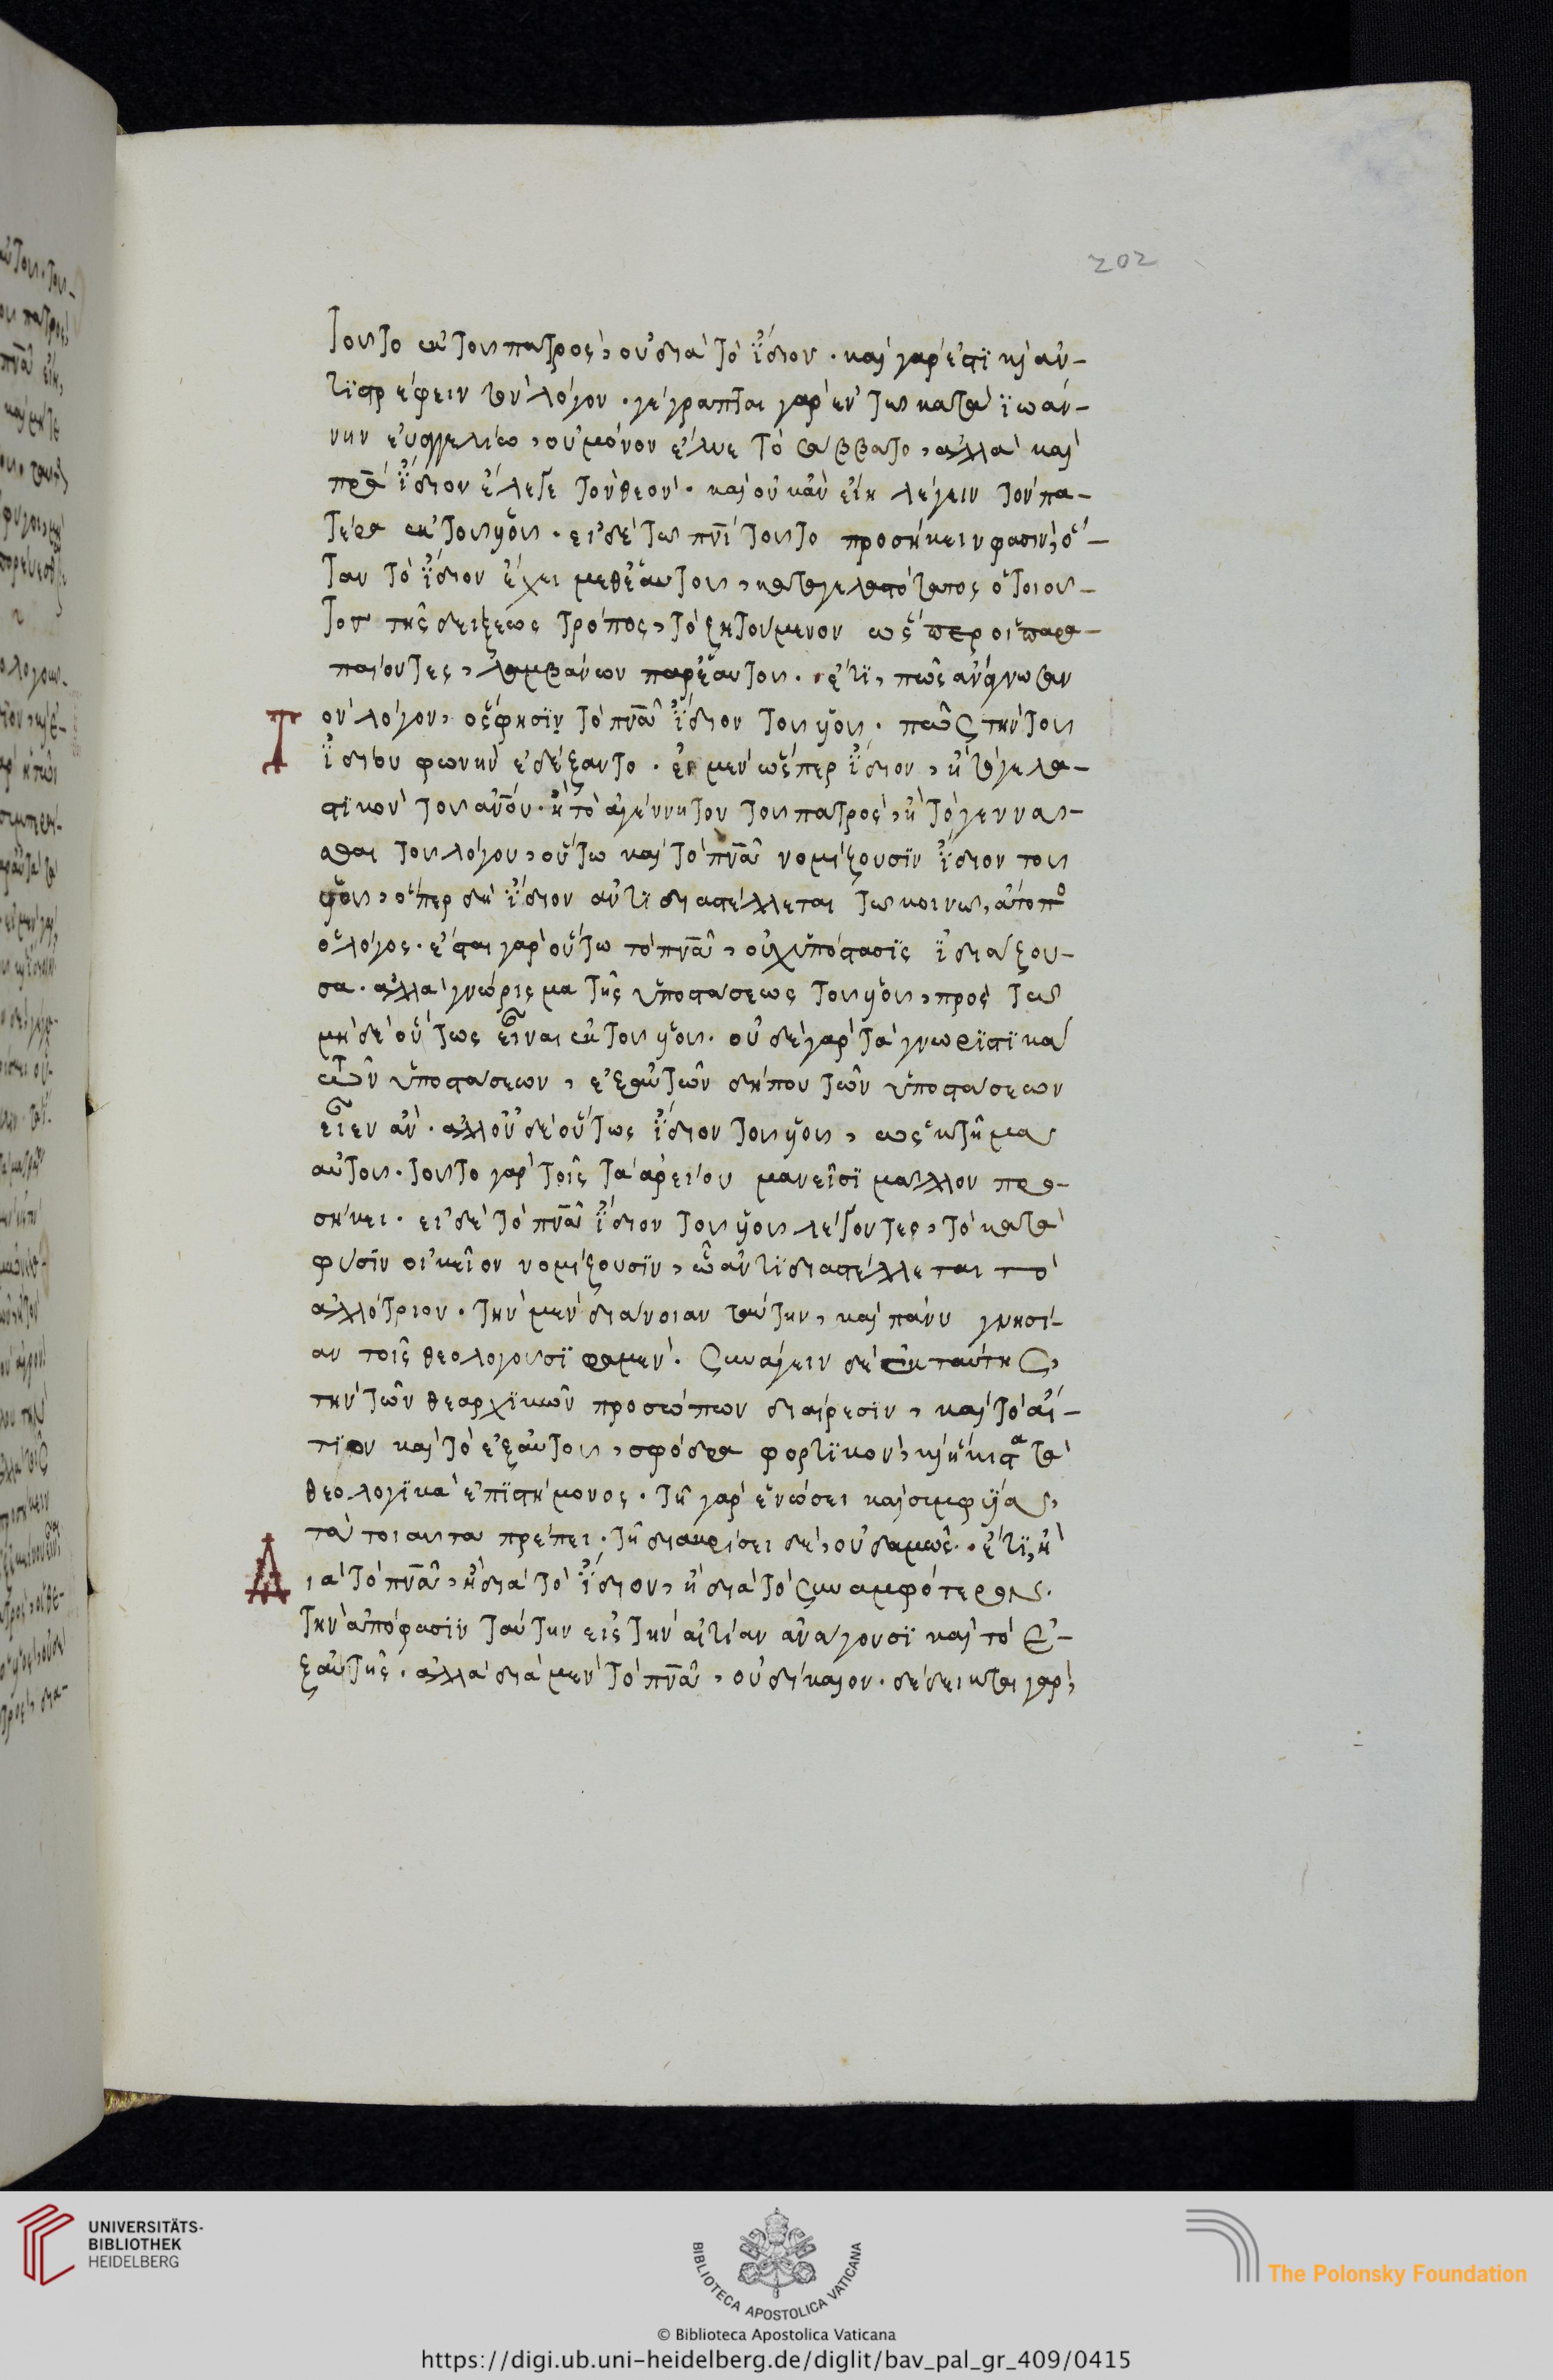 202
τουτο εκ του πατρὸς, οὐ διὰ τὸ ἴ̈διον. καὶ γάρ ἐστϊ κὶ ἀν-
τϊστρέφειν τὸν λόγον. γέγραπται γὰρ ἐν τω κατὰ ϊωάν-
νην εὐαγγελίω, οὐ μόνον ἔλυε τὸ σάββατο, ἀλλὰ καὶ
πρ̅α ἴ̈διον ἔλεγε τὸν θεόν. καὶ οὐκ ἂν εἴη λέγειν τὸν πα-
τέρα ἐκ του υ̅ου. εἰ δὲ τω πν̅ι τουτο προσήκειν φασὶν, ὅ-
ταν τὸ ἴ̈διον ἔχει μεθ ἑαυτου, καταγελαστότατος ὁ τοιου-
τος της δείξεως τρόπος, τὸ ζητούμενον ὥσπερ οἱ παρα-
παίοντες, λαμβάνων παρ ἑαυτου. ἔτϊ, πῶς ἀνέγνωσαν
τ ὸν λόγον, ὃς φησϊν τὸ πν̅α ἴ̈διον του υ̅ου. πῶς τὴν του
ἰ̈δίου φωνὴν ἐδέξαντο. εἰ μὲν ὥσπερ ἴ̈διον, ἢ τὸ γελα-
στϊκὸν του αν̅ου. ἢ τὸ ἀγέννητον του πατρὸς, ἢ τὸ γεννασ-
θαι του λόγου, οὕτω καὶ τὸ πν̅α νομίζουσϊν ἴ̈διον του
υ̅ου, ὅπερ δὴ ἴ̈διον ἀντϊδιαστέλλεται τω κοινω, άτοπο
ὁ λόγος. ἔσται γὰρ οὕτω τὸ πν̅α, οὐχ ὑπόστασϊς ἰ̈διάζου-
σα. ἀλλὰ γνώρισμα της ὑποστάσεως του υ̅ου, πρὸς τω
μηδὲ οὕτως εἶναι ἐκ του υ̅ου. οὐδὲ γὰρ τὰ γνωρϊστϊκὰ
τῶν ὑποστάσεων, ἐξ αὐτῶν δήπου τῶν ὑποστάσεων
εἶεν ἄν. ἀλλ οὐδὲ οὕτως ἴ̈διον του υ̅ου, ὡς κτῆμα
αὐτου. τουτο γὰρ τοῖς τὰ ἀρείου μανεῖσϊ μαλλον προ-
σήκει. εἰ δὲ τὸ πν̅α ἴ̈διον του υ̅ου λέγοντες, τὸ κατὰ
φύσϊν οἰκεῖον νομίζουσϊν, ὧ ἀντϊδιαστέλλεται τὸ
ἀλλότριον. τὴν μὲν διάνοιαν ταύτην, καὶ πάνυ γνησί-
αν τοῖς θεολογουσϊ φαμέν. συνάγειν δὲ ἐκ ταύτης,
τὴν τῶν θεαρχϊκῶν προσώπων διαίρεσϊν, καὶ τὸ αἴ-
τϊον καὶ τὸ ἐξ αὐτου, σφόδρα φορτϊκὸν, κὶ ἥκιστα τὰ
θεολογϊκὰ ἐπϊστήμονος. τῆ γὰρ ἑνώσει καὶ συμφυΐα,
τὰ τοιαυτα πρέπει. τῆ διακρίσει δὲ, οὐδαμῶς. ἔτϊ, ἢ
Δ ιὰ τὸ πν̅α, ἢ διὰ τὸ ἴ̈διον, ἢ διὰ τὸ συναμφότερον
τὴν ἀπόφασϊν ταύτην εἰς τὴν αἰτίαν ἀνάγουσϊ καὶ τὸ ἐ-
ξ αὐτῆς. ἀλλὰ διὰ μὲν τὸ πν̅α, οὐ δίκαιον. δέδεικται γὰρ,
UNIVERSITÄTS-
BIBLIOTHEK
HEIDELBERG
BIBLIOTECA APOSTOLICA VATICANA
The Polonsky Foundation
© Biblioteca Apostolica Vaticana
https://digi.ub.uni-heidelberg.de/diglit/bav_pal_gr_409/0415